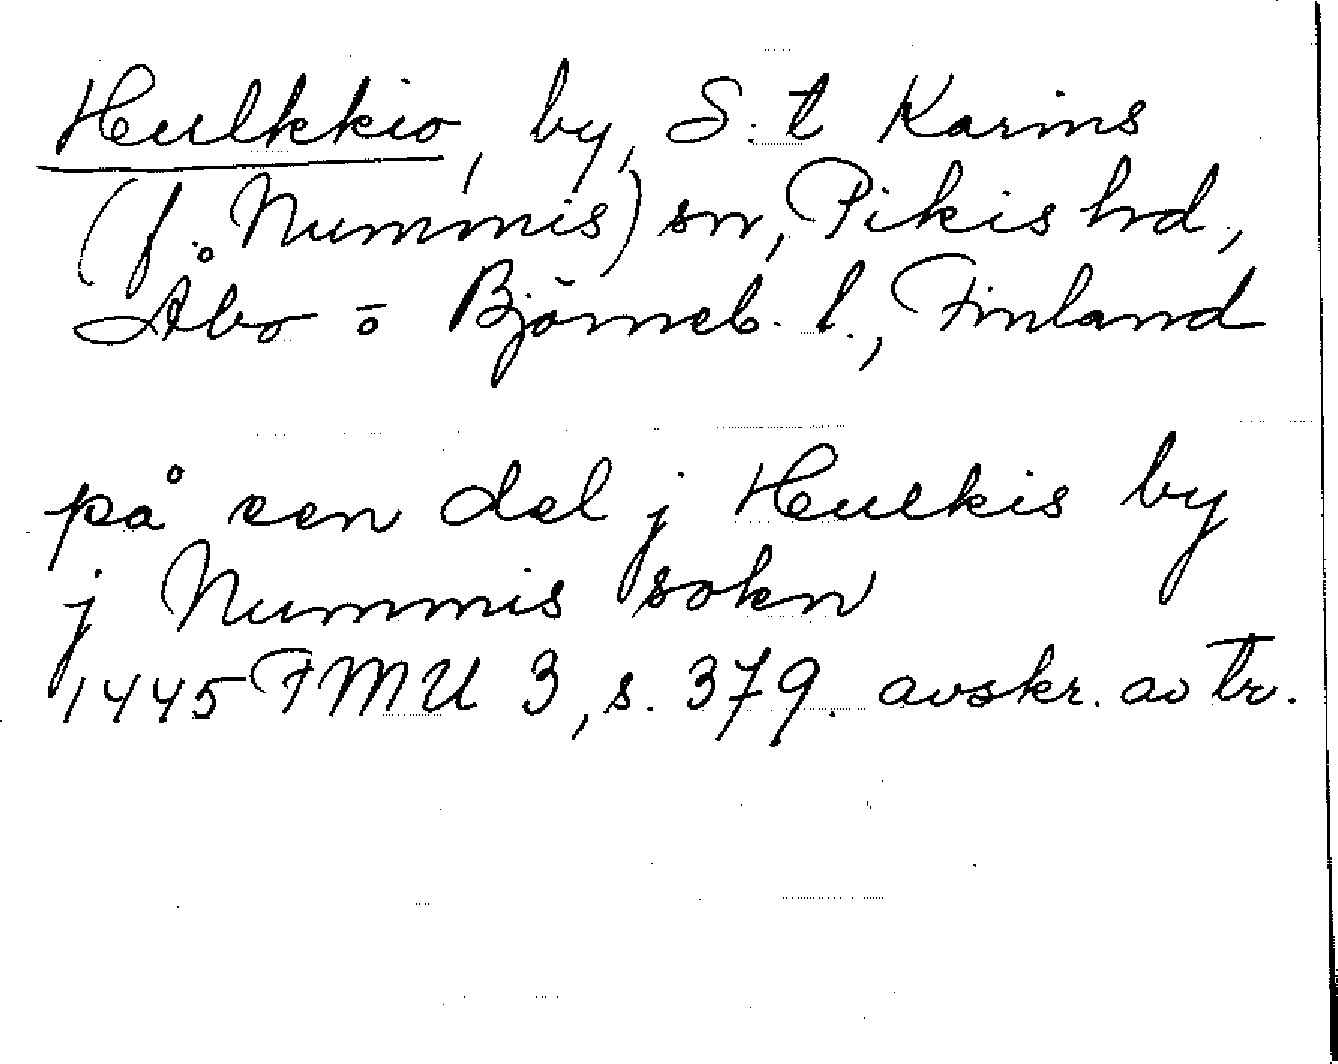 Hulkkio, by, S:t Karins
(f. Nummis) sn, Pikis hd,
Åbo o Björneb. l., Finland
på een del j Hulkis by
j Nummis sokn
1445 FMU 3, s. 379. avskr. av tr.